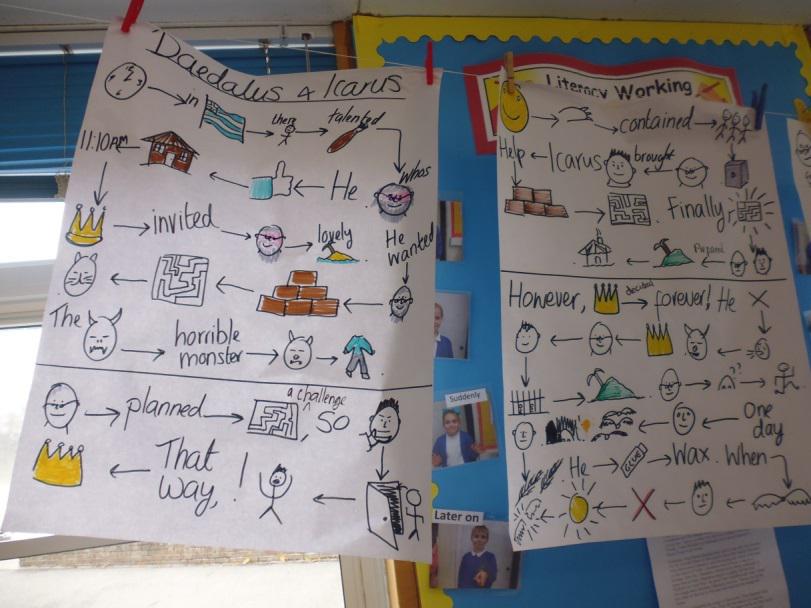 Daedalus & Icarus
in there talented
11:10am He Whos
invited lovely He
wanted
The horrible
monster
planned a challenge
, So
That
way, !
Literacy Working
contained
Help Icarus brought
Finally,
However, decided forever! He
??
One
day
He GLUE Wax. When
Suddenly
Later on